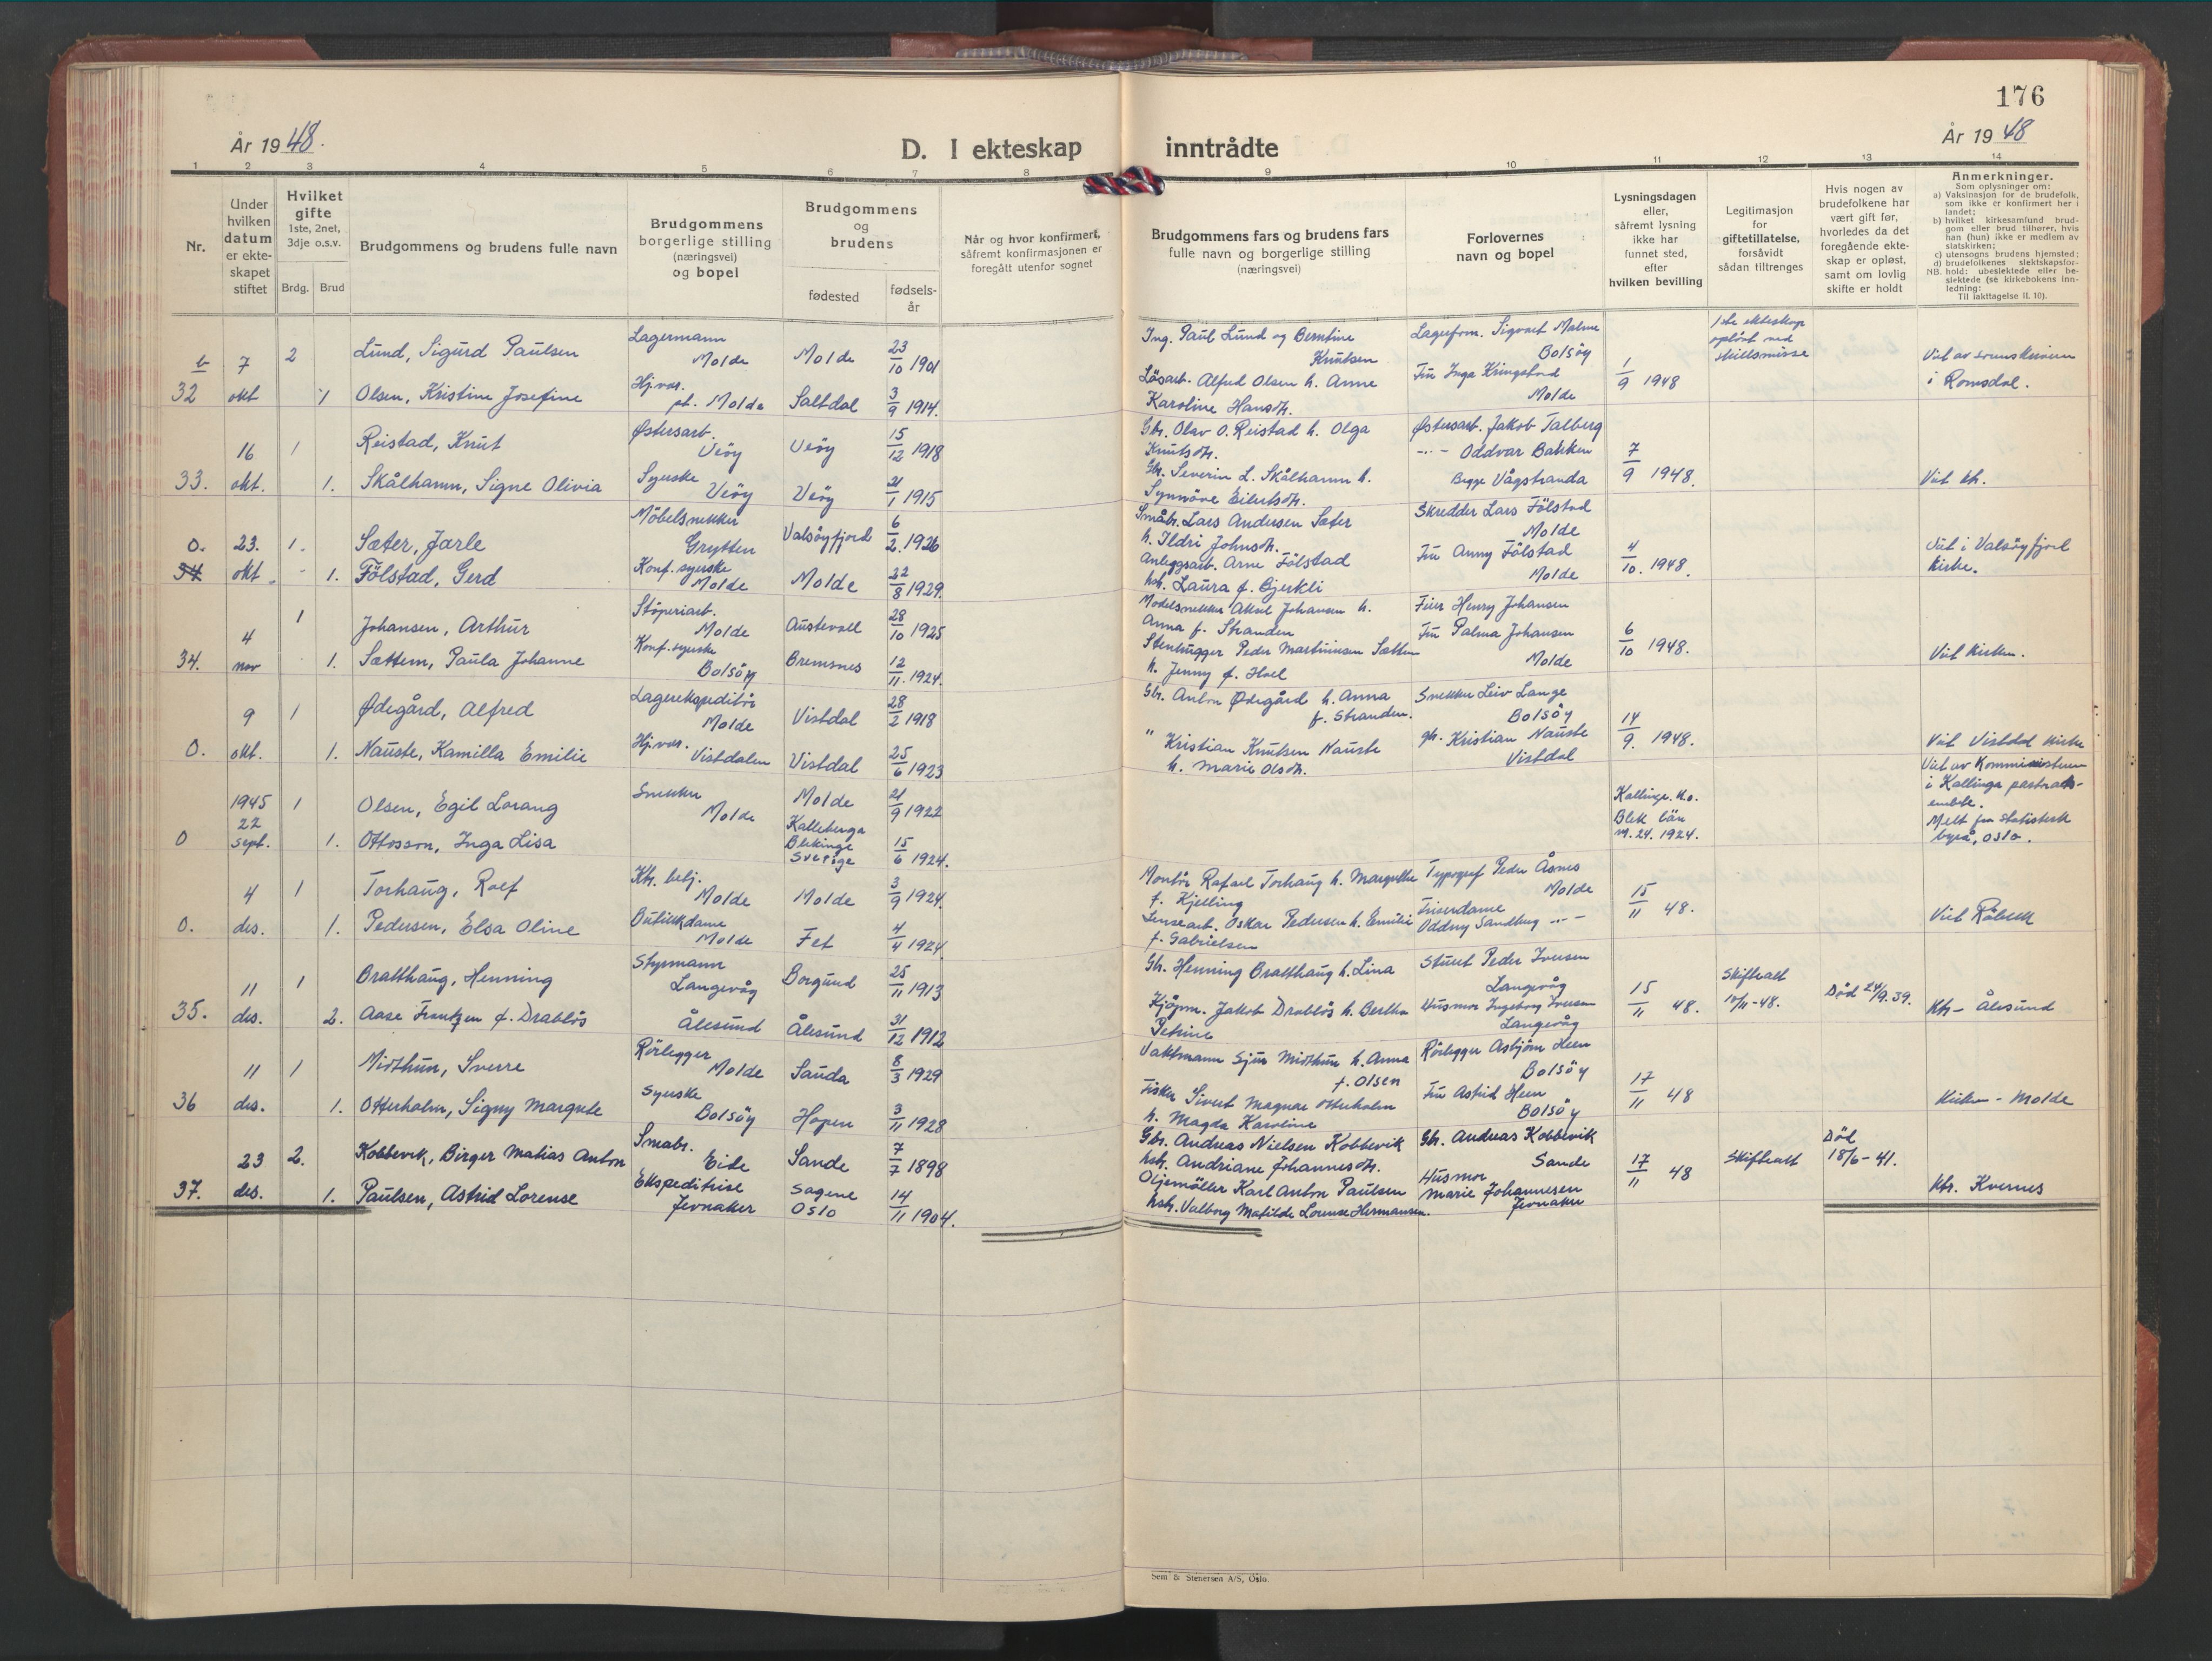 176
År 1948.
D. I ekteskap inntrådte
År 1948
1 2 3 4 5 6 7 8 9 10 11 12 13 14
Nr.
Under hvilken datum er ekteskapet stiftet
Hvilket gifte 1ste, 2net, 3dje o.s.v.
Brdg. Brud
Brudgommens og brudens fulle navn
Brudgommens borgerlige stilling (næringsvei) og bopel
Brudgommens og brudens
fødested
fødselsår
Når og hvor konfirmert, såfremt konfirmasjonen er foregått utenfor sognet
Brudgommens fars og brudens fars fulle navn og borgerlige stilling (næringsvei)
Forlovernes navn og bopel
Lysningsdagen eller, såfremt lysning ikke har funnet sted, efter hvilken bevilling
Legitimasjon for giftetillatelse, forsåvidt sådan tiltrenges
Hvis nogen av brudefolkene har vært gift før, hvorledes da det foregående ekteskap er opløst, samt om lovlig skifte er holdt
Anmerkninger.
Som oplysninger om:
a) Vaksinasjon for de brudefolk, som ikke er konfirmert her i landet;
b) hvilket kirkesamfund brudgom eller brud tilhører, hvis han (hun) ikke er medlem av statskirken;
c) utensogns brudens hjemsted;
d) brudefolkenes slektskapsforhold: ubeslektede eller beslektede (se kirkebokens innledning:
NB. Til iakttagelse II. 10).
b 7 2 Lund, Sigurd Paulsen Lagermann Molde Molde 23/10 1901 Ing. Paul Lund og Berntine Knutsen Lagerfrm. Sigvart Malme Bolsöy 1ste ekteskap oplöst ved skilsmisse Viet av sorenskriveren
32 okt 1 Olsen, Kristine Josefine Hj.vær. pt. Molde Saltdal 3/9 1914. Lösarb. Alfred Olsen h. Anne Karoline Hansdtr. Fru Inga Kringstad Molde 1/9 1948 i Romsdal.
16 1 Reistad, Knut Østersarb. Veöy Veöy 15/12 1918 Gbr. Olav O. Reistad h. Olga Knutsdtr. Østersarb. Jakob Talberg
33. okt. 1. Skålhamn, Signe Olivia Syerske Veöy Veöy 21/1 1915 Gbr. Severin L. Skålhamn h. Synnöve Eilertsdtr. -"- Oddvar Bakken Begge Vågstranda 7/9 1948. Viet kh.
0. 23. 1. Sæter, Jarle Möbelsnekker Grytten Valsöyfjord 6/2 1926 Småbr. Lars Andersen Sæter h. Ildri Johnsdtr. Skredder Lars Fölstad Molde Viet i Valsöyfjord
34 okt. 1. Fölstad, Gerd Konf. syerske Molde Molde 22/8 1929. Anleggsarb. Arne Fölstad hch. Laura f. Bjerkli Fru Anny Fölstad Molde 4/10. 1948. Kirke.
4 1 Johansen, Arthur Stöperiarb. Molde Austevoll 28/10 1925 Modelsnekker Aksel Johansen h. Anna f. Stranden Feier Henry Johansen
34. nov 1. Sættem, Paula Johanne Konf. syerske Bolsöy Bremsnes 12/11. 1924. Stenhugger Peder Martiniusen Sættem h. Jenny f. Hoel Fru Palma Johansen Molde 6/10 1948. Viet Kirken.
9 1 Ødegård, Alfred Lagerekspeditör Molde Vistdal 28/2 1918 Gbr. Anton Ødegård h. Anna f. Stranden. Snekker Leiv Lange Bolsöy
0. okt. 1. Nauste, Kamilla Emilie Hj.vær. Vistdalen Vistdal 25/6 1923 " Kristian Knutsen Nauste h. Marie Olsdtr. gbr. Kristian Nauste Vistdal 14/9. 1948. Viet Vistdal kirke
1945 22 1 Olsen, Egil Lorang Snekker Molde Molde 21/9 1922 Kallinge k.o. Viet av Kommunisteren i Kallinge pastoratsembete.
0 sept. 1. Ottosson, Inga Lisa Kalleberga Blekinge Sverige 15/6 1924. Blek län nr. 24. 1924. Melt fra Statistisk byrå, Oslo.
4 1 Torhaug, Rolf Ktr. betj. Molde Molde 3/9 1924. Montör Rafael Torhaug h. Margrethe f. Kjelling Typograf Peder Åsnes Molde
0. des. 1. Pedersen, Elsa Oline Butikkdame Molde Fet 4/4 1924. Lensearb. Oskar Pedersen h. Emilie f. Gabrielsen Friserdame Oddny Sandberg -"- 15/11 48. Viet Röbekk
11 1 Bratthaug, Henning Styrmann Langevåg Borgund 25/11 1913 Gbr. Henning Bratthaug h. Lina Stuert Peder Iversen Langevåg Skifteatt
35. des. 2. Aase Frantzen f. Drablös Ålesund Ålesund 31/12 1912 Kjöpm. Jakob Drablös h. Bertha Petrine Husmor Ingeborg Iversen Langevåg 15/11 48. 10/11-48. Död 24/9.39. Ktr - Ålesund
11 1 Midthun, Sverre Rörlegger Molde Sauda 8/3 1929 Vaktmann Sjur Midthun h. Anna f. Olsen Rörlegger Asbjörn Heen Bolsöy
36 des. 1. Otterholm, Signy Margrete Syerske Bolsöy Hopen 3/11 1928 Fisker Sivert Magnar Otterholm h. Magda Karoline Fru Astrid Heen Bolsöy 17/11 48 Kirken - Molde
23 2. Kobbevik, Birger Matias Anton Småbr. Eide Sande 7/7 1898 Gbr. Andreas Nielsen Kobbevik hch. Andriane Johannesdtr. Gbr. Andreas Kobbevik Sande Skifteatt Död 18/6-41.
37. des. 1. Paulsen, Astrid Lorense Ekspeditrise Jevnaker Sagene Oslo 14/11 1904. Oljemöller Karl Anton Paulsen hch. Valborg Matilde Lorense Hermansen. Husmor Marie Johannesen Jevnaker 17/11 48 Ktr. Kvernes
Sem & Stenersen A/S, Oslo.